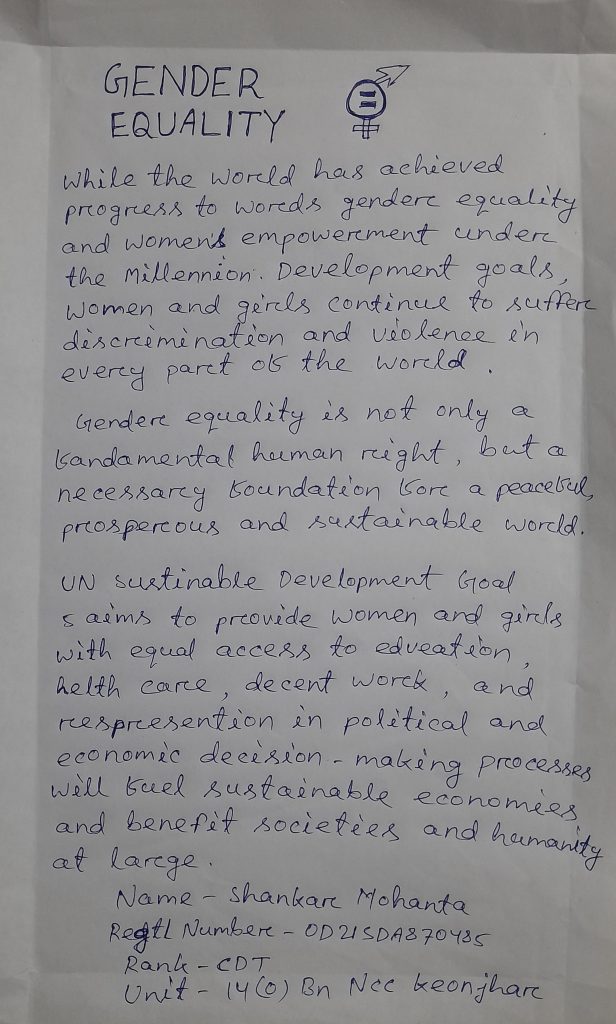 GENDER
EQUALITY
While the world has achieved
progress to words gender equality
and women's empowerment under
the Millennion. Development goals,
women and girls continue to suffer
discrimination and violence in
every part of the world.
Gender equality is not only a
fandamental human right, but a
necessary foundation for a peaceful,
prosperous and sustainable world.
UN sustinable Development Goal
5 aims to provide women and girls
with equal access to education,
helth care, decent work, and
respresention in political and
economic decision-making processes
will fuel sustainable economies
and benefit societies and humanity
at large.
Name - Shankar Mohanta
Regtl Number - OD21SDA870485
Rank - CDT
Unit - 14(O) Bn Ncc Keonjhar